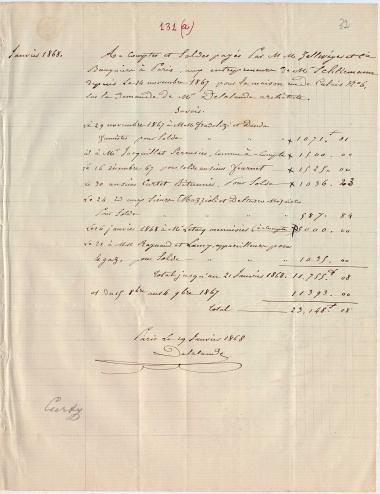 131 (a)
Janvier 1868.
Acomptes et Soldes payés par M.M. Zellweger et Cie
Banquiers à Paris, aux entrepreneurs de Mr Schliemann
depuis le 14 novembre 1867 pour la maison rue de Calais No 6,
sur la demande de Mr Delalande architecte.
Savoir
Le 29 novembre 1867 à M.M.
fumistes pour Solde 1071 f 01
à Mr Jacquillat Serrurier, comme à-compte 1500. 00
Le 16 décembre 67 pour solde au Sieur 1525. 00
Le 20 aux Sieurs pour Solde 1036. 23
Le 24 aux Sieurs et
pour Solde 587. 84
Le 16 janvier 1868 à Mr menuisier à-compte 5000. 00
Le 21 à MM. Raynaud et Lamy appareilleurs pour
le gaz, pour Solde 1035. 00
Total jusqu'au 21 Janvier 1868. 11.755 f 08
et du 15 8bre au 4 9bre 1867 11393. 00
Total 23,148 f 08
Paris Le 29 Janvier 1868
Delalande